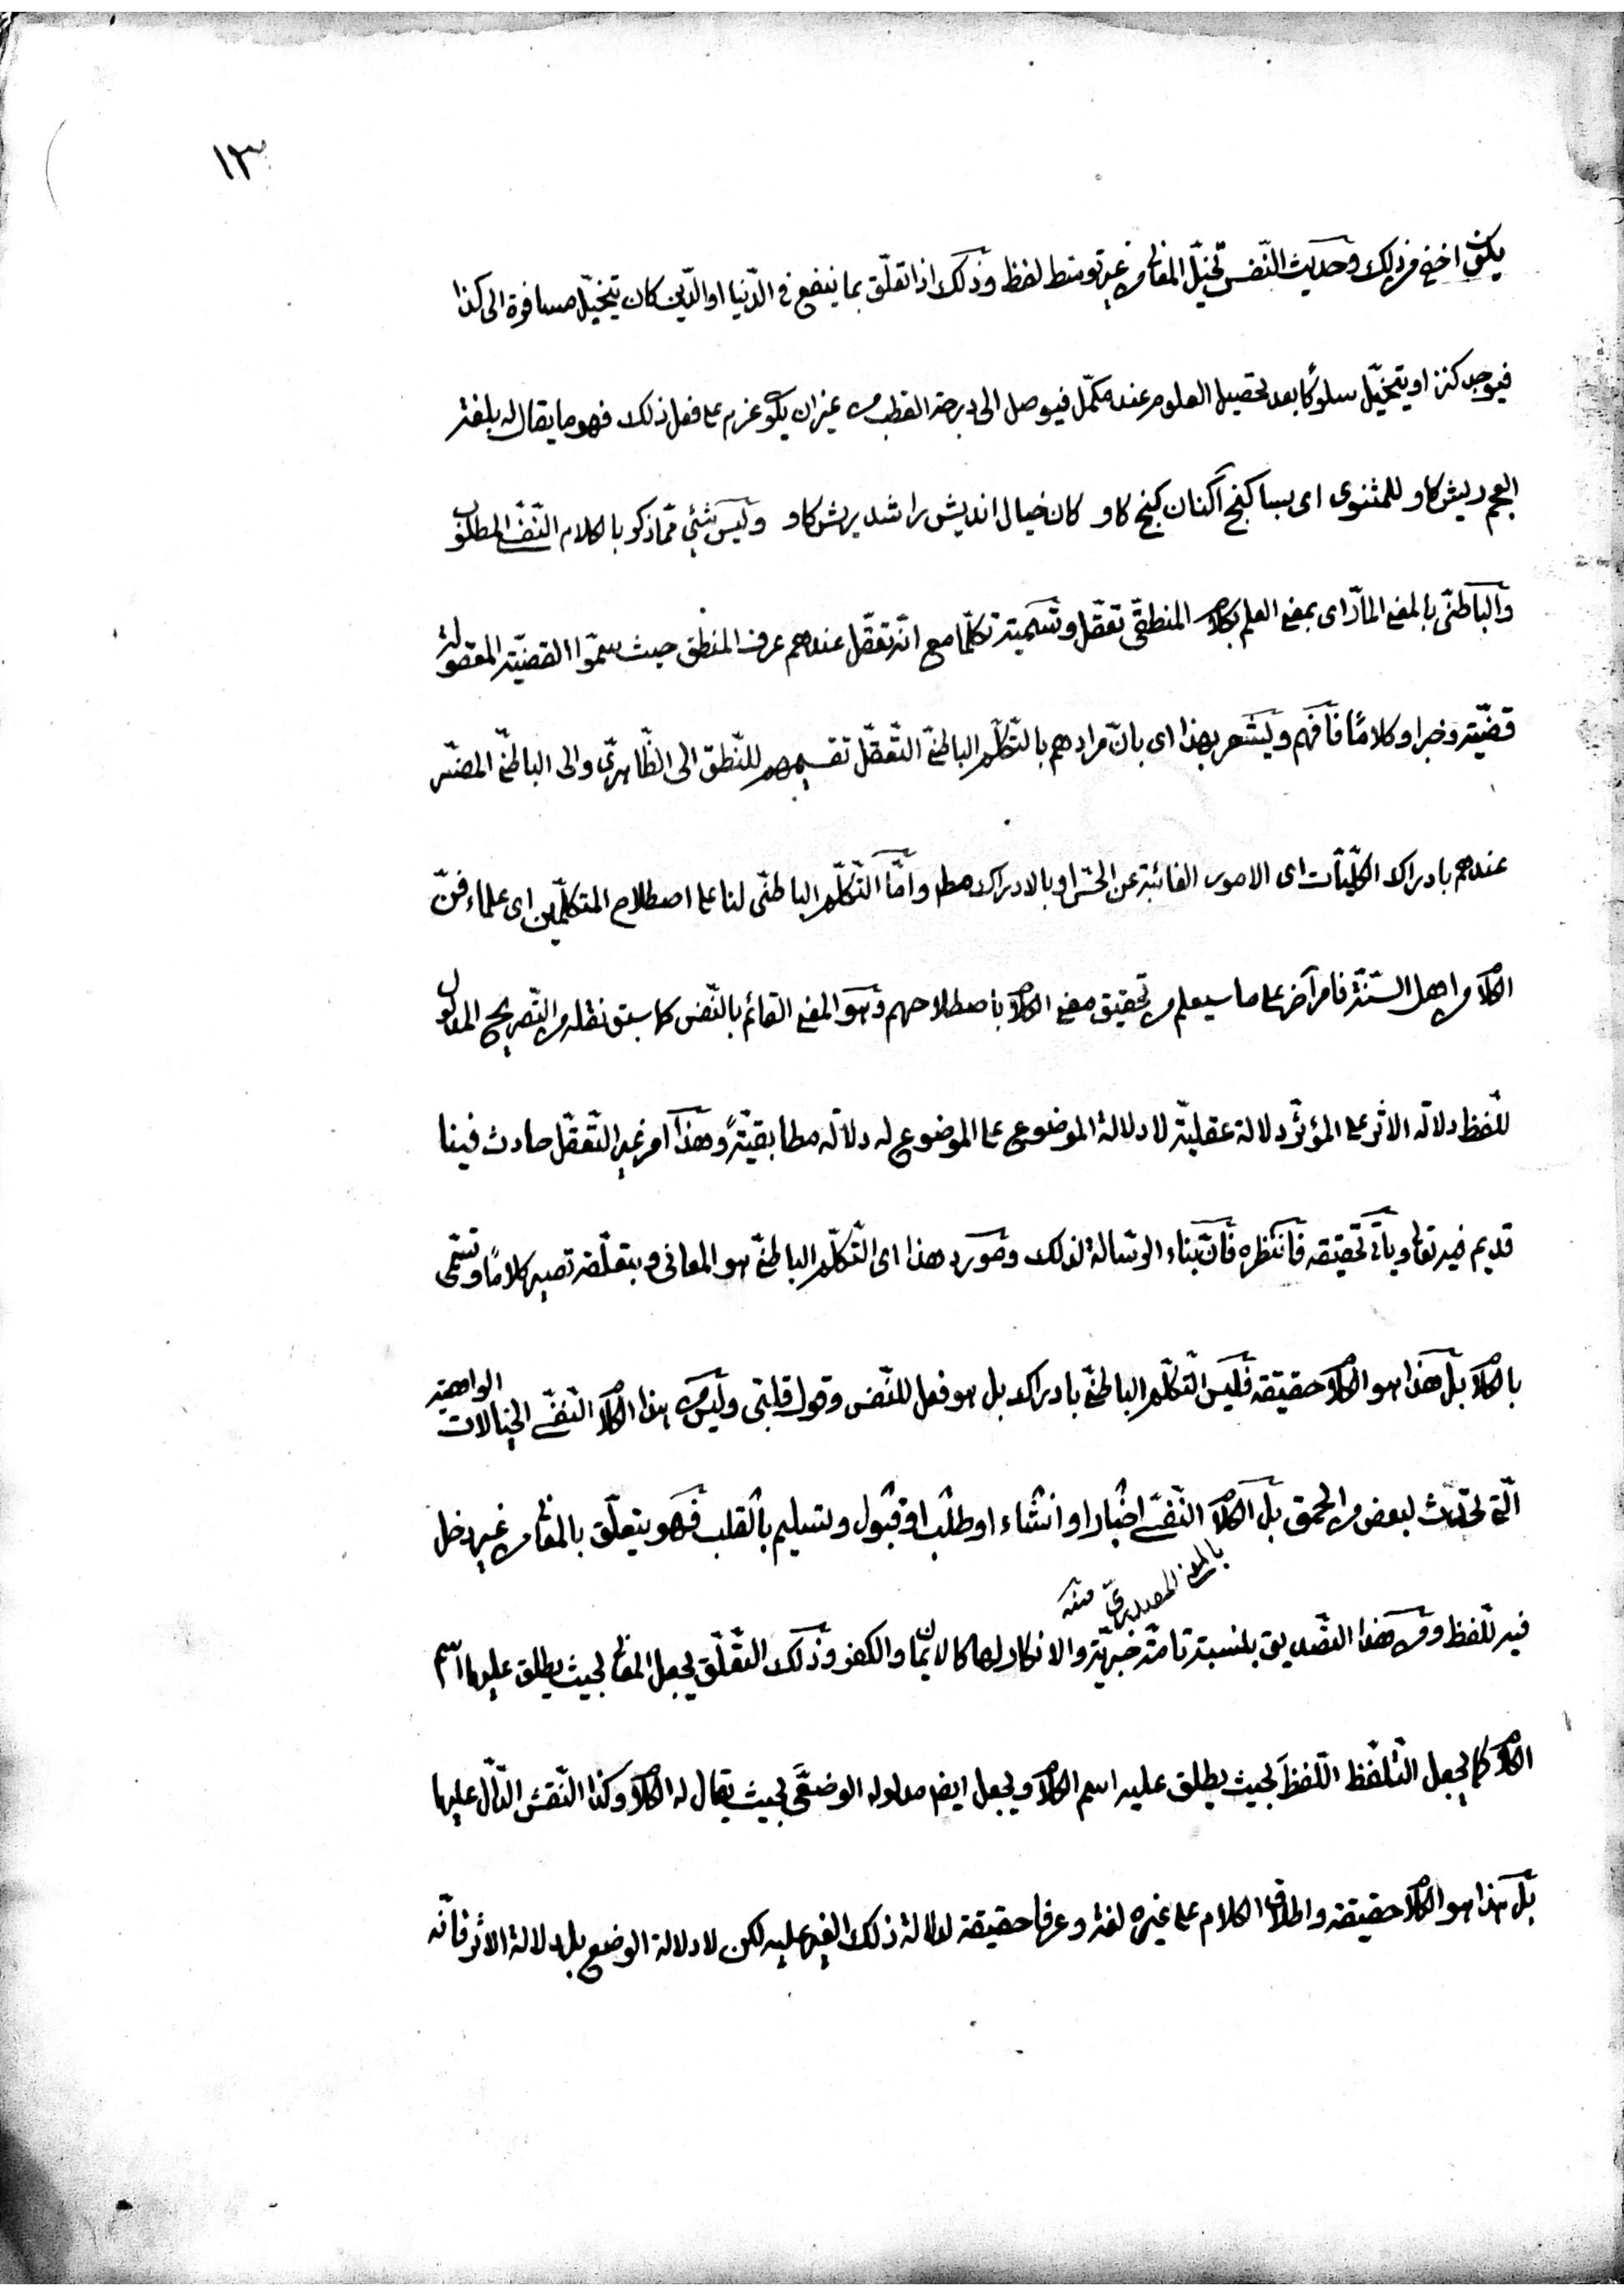 ١٣
يكون اخفى من ذلك وحديث النّفس تخيّل المعانى من غير توسّط لفظ وذلك اذا تعلّق بما ينفع فى الدّنيا او الدّين كان يتخيّل مسافرة الى كذا
فيوجد كنز او يتخيّل سلوكًا بعد تحصيل العلوم عند مكمّل فيوصل الى درجة القطب من غير ان يكون عزم على فعل ذلك فهو ما يقال له بلغة
العجم ريش كاو وللمثنوى اى بسا كنج آكنان كنج كاو كان خيال انديش را شد ريش كاو وليس شئ ممّا ذكر بالكلام النّفسى المطلوب
والباطنىّ بالمعنى المارّ اى بمعنى العلم بكلام المنطقىّ تعقّل وتسميته تكلّما مع انّه تعقّل عندهم عرف المنطق حيث سمّوا القضيّة المعقولة
قضيّة وخبرا وكلامًا فافهم ويشعر بهذا اى بانّ مرادهم بالتّكلّم الباطنىّ التّعقّل تقسيمهم للنّطق الى الظّاهرىّ والى الباطنىّ المفسّر
عندهم بادراك الكلّيّات اى الامور الغائبة عن الحسّ او بالادراك مط وامّا التّكلّم الباطنىّ لنا على اصطلاح المتكلّمين اى علماء فنّ
الكلام من اهل السّنّة فامر آخر على ما سيعلم من تحقيق معنى الكلام باصطلاحهم وهو المعنى القائم بالنّفس كما سبق نقله من التّصريح المدلول
للّفظ دلالة الاثر على المؤثّر دلالة عقليّة لا دلالة الموضوع على الموضوع له دلالة مطابقيّةً وهذا امر غير التّعقّل حادث فينا
قديم فيه تعالى ويأتى تحقيقه فانتظره فانّ بناء الرّسالة لذلك ومورد هذا اى التّكلّم الباطنىّ هو المعانى وبتعلّقه تصير كلامًا وتسمّى
بالكلام بل هذا هو الكلام حقيقة فليس التّكلّم الباطنىّ بادراك بل هو فعل للنّفس وقول قلبىّ وليس من هذا الكلام النّفسىّ الخيالات الواهية
الّتى تحدث لبعض من الحمق بل الكلام النّفسىّ اخبار او انشاء او طلب او قبول وتسليم بالقلب فهو يتعلّق بالمعانى من غير دخل
بالمعنى المصدرىّ منه
فيه للّفظ ومن هذا التّصديق بنسبة تامّة خبريّة والانكار لها كالايمان والكفر وذلك التّعلّق يجعل المعانى بحيث يطلق عليها اسم
الكلام كما يجعل التّلفّظ اللّفظَ بحيث يطلق عليه اسم الكلام ويجعل ايض مدلوله الوضعىّ بحيث يقال له الكلام وكذا النّقش الدّالّ عليها
بل هذا هو الكلام حقيقة واطلاق الكلام على غيره لغة وعرفا حقيقة لدلالة ذلك الغير عليه لكن لا دلالة الوضع بل دلالة الاثر فانّه